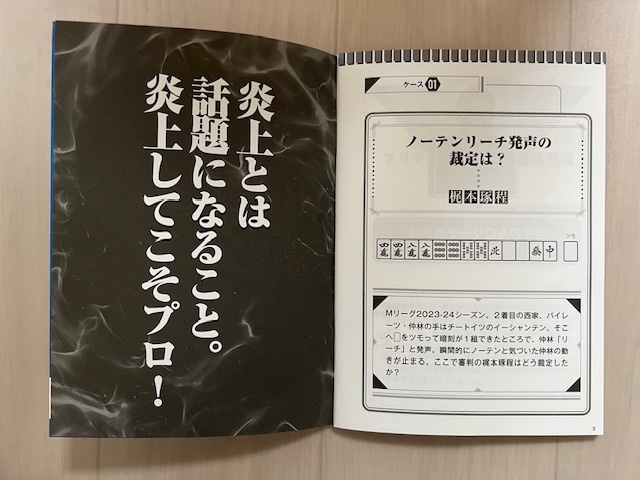 炎上とは
話題になること。
炎上してこそプロ！
ケース 01
ノーテンリーチ発声の
裁定は？
梶本琢程
ツモ
四萬 四萬 八萬 八萬 北 發 中
Mリーグ2023-24シーズン。2着目の西家、パイレ
ーツ・仲林の手はチートイツのイーシャンテン。そこ
へ□をツモって暗刻が1組できたところで、仲林「リ
ーチ」と発声。瞬間的にノーテンと気づいた仲林の動
きが止まる。ここで審判の梶本琢程はどう裁定した
か？
3